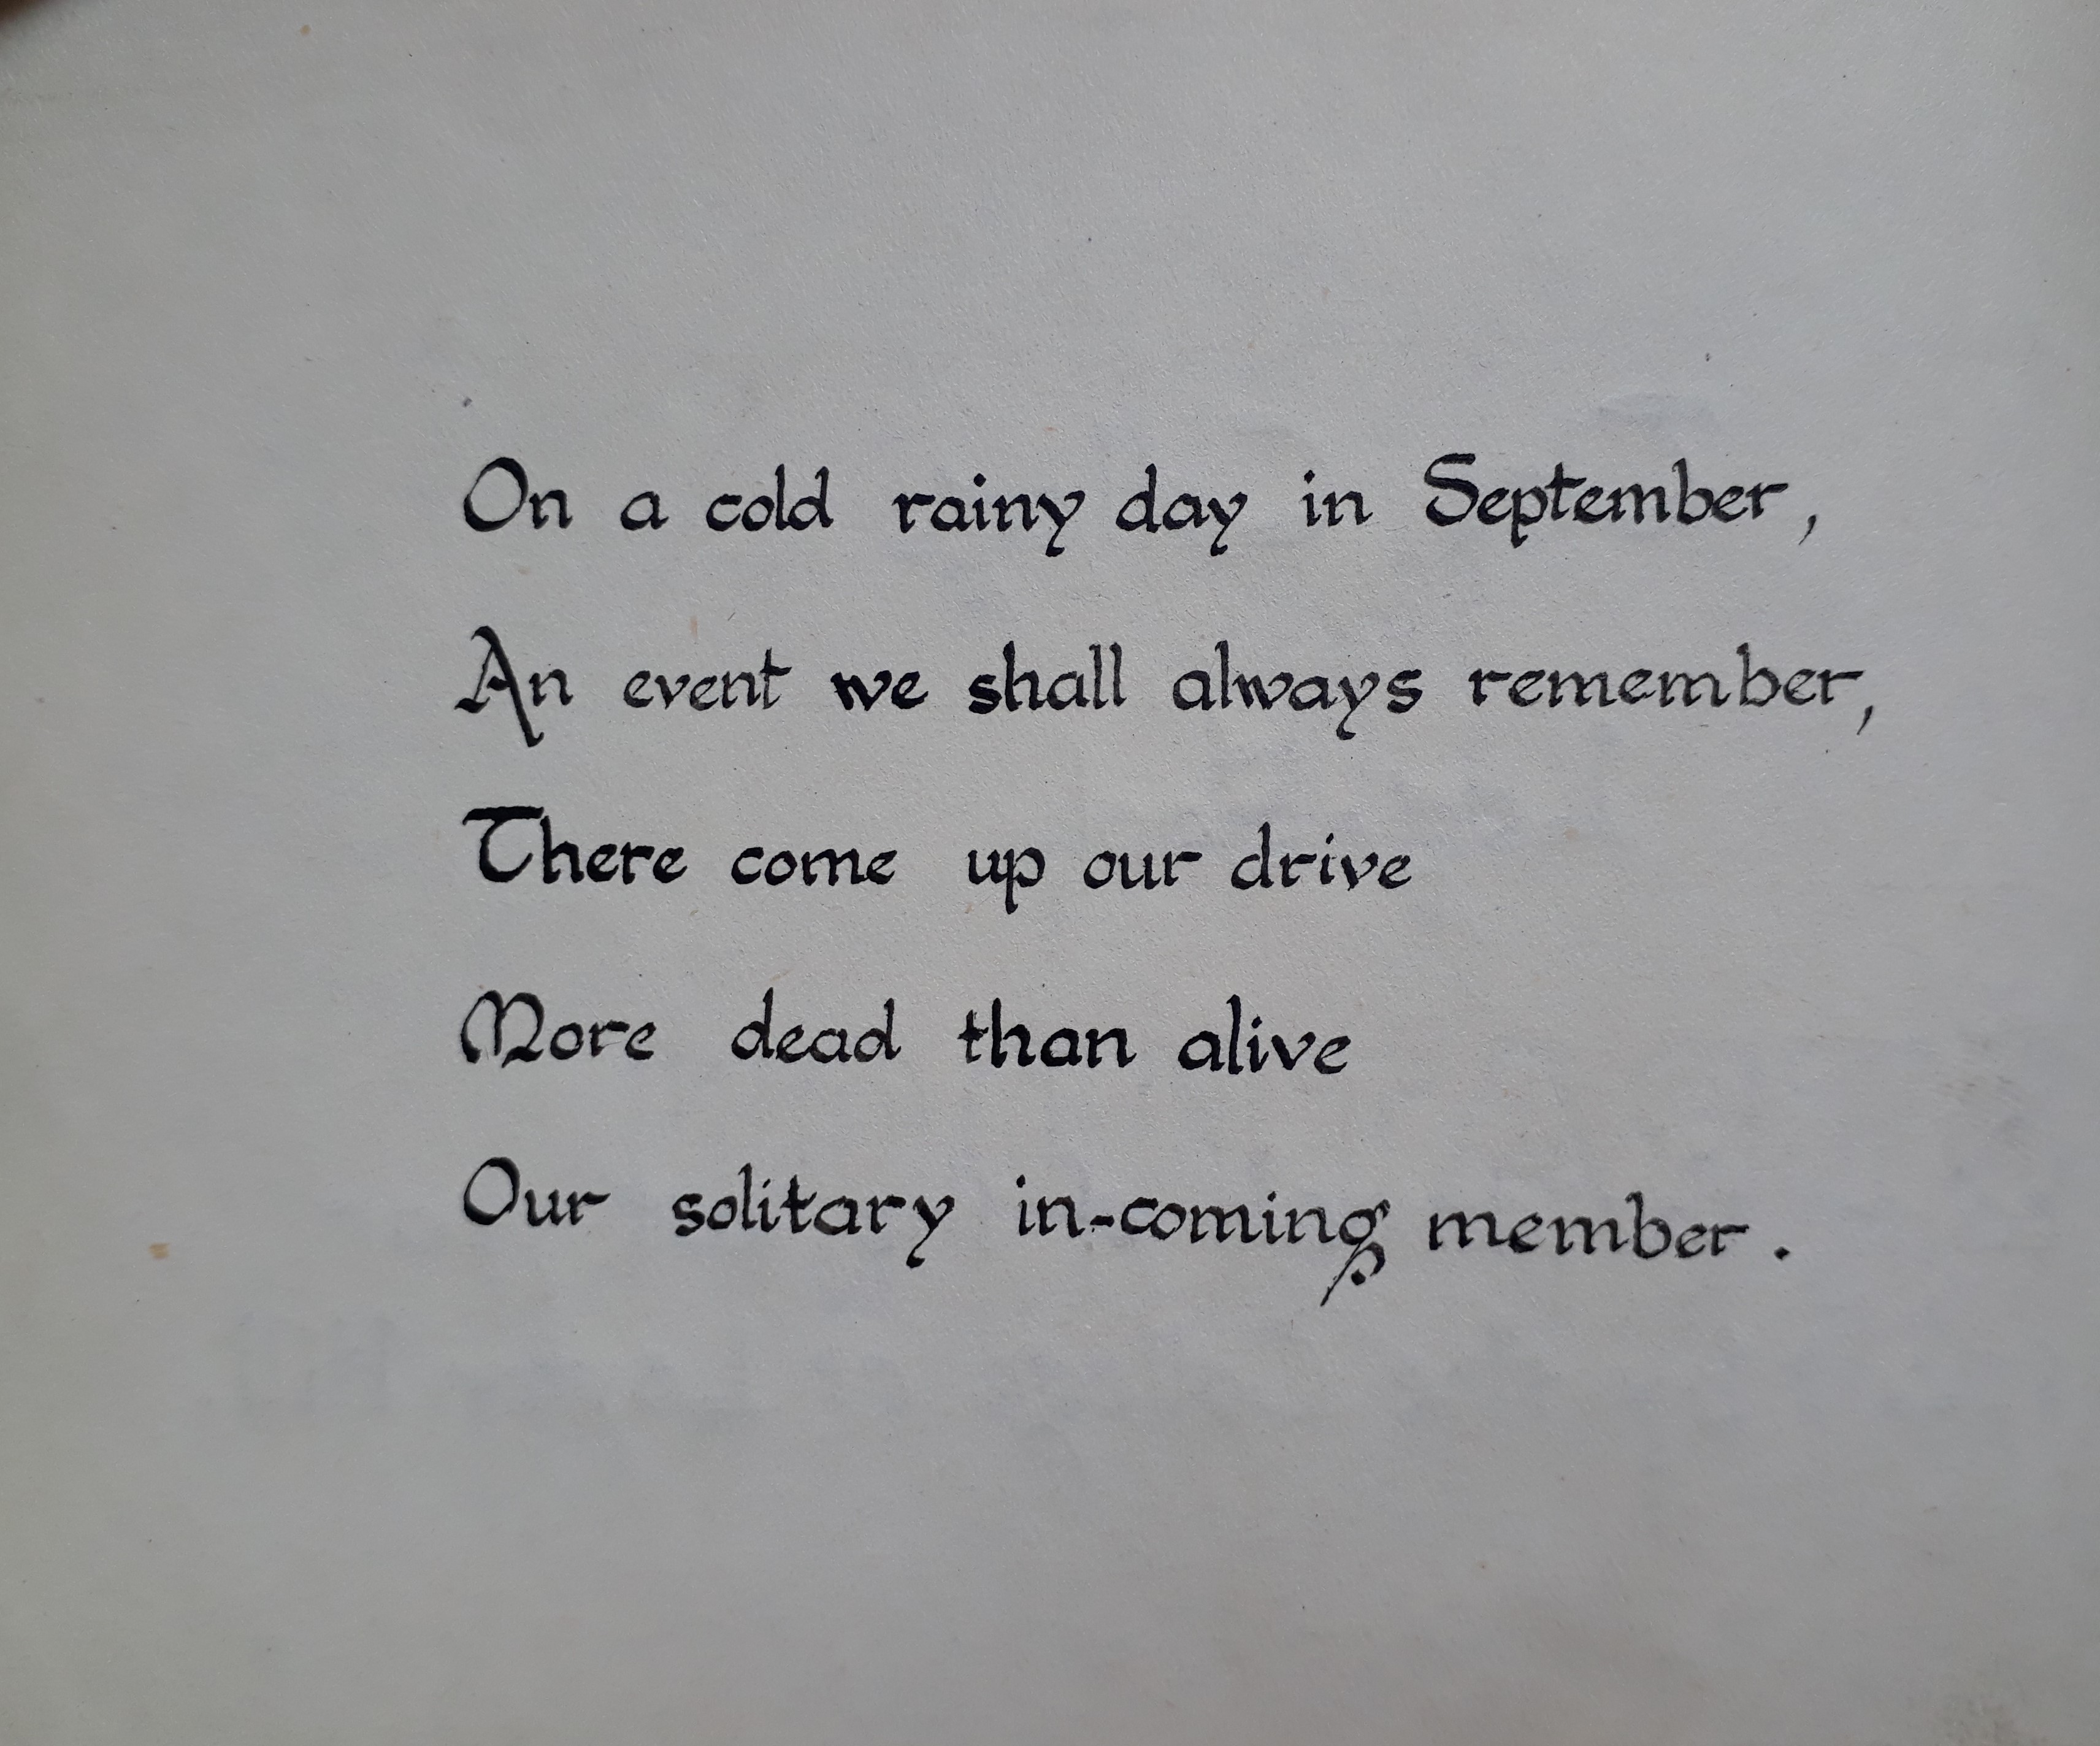 On a cold rainy day in September,
An event we shall always remember,
There come up our drive
More dead than alive
Our solitary in-coming member.